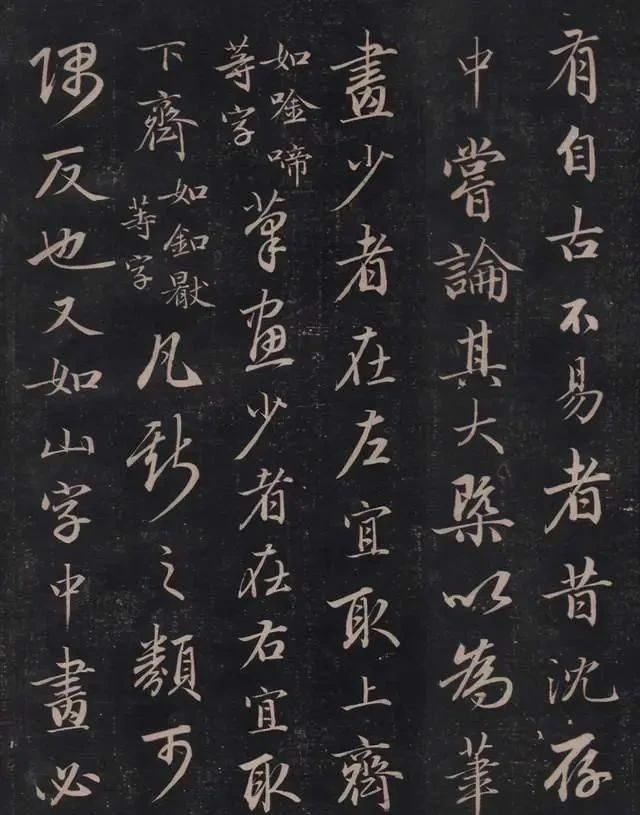 有自古不易者昔沈存
中嘗論其大槩以為筆
畫少者在左宜取上齊
如唫啼等字筆畫少者在右宜取
下齊如釦等字凡斯之類可
隅反也又如山字中畫必